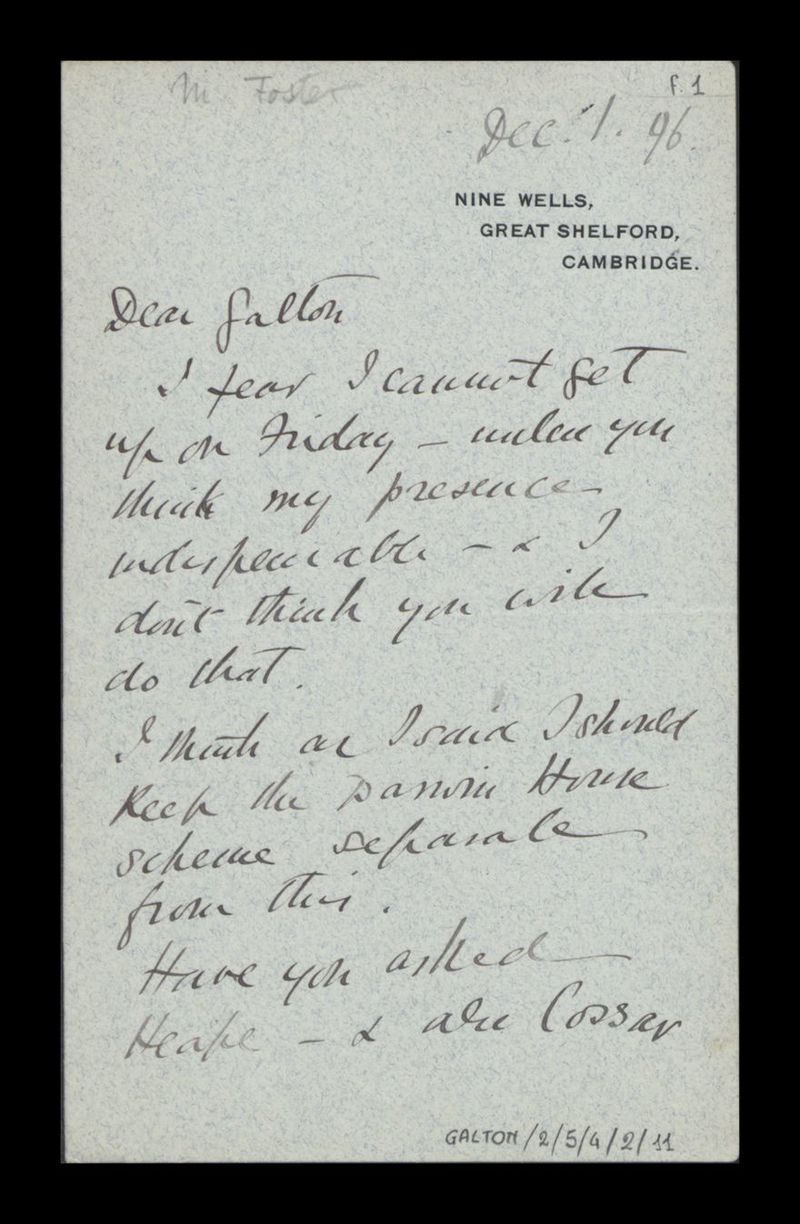 M. Foster
f. 1
Dec. 1. 96.
NINE WELLS,
GREAT SHELFORD,
CAMBRIDGE.
Dear Galton
I fear I cannot get
up on Friday – unless you
think my presence
indispensable – & I
don't think you will
do that.
I think as I said I should
keep the Darwin House
scheme separate
from this.
Have you asked
Heape – & also Cossar
GALTON/2/5/4/2/11